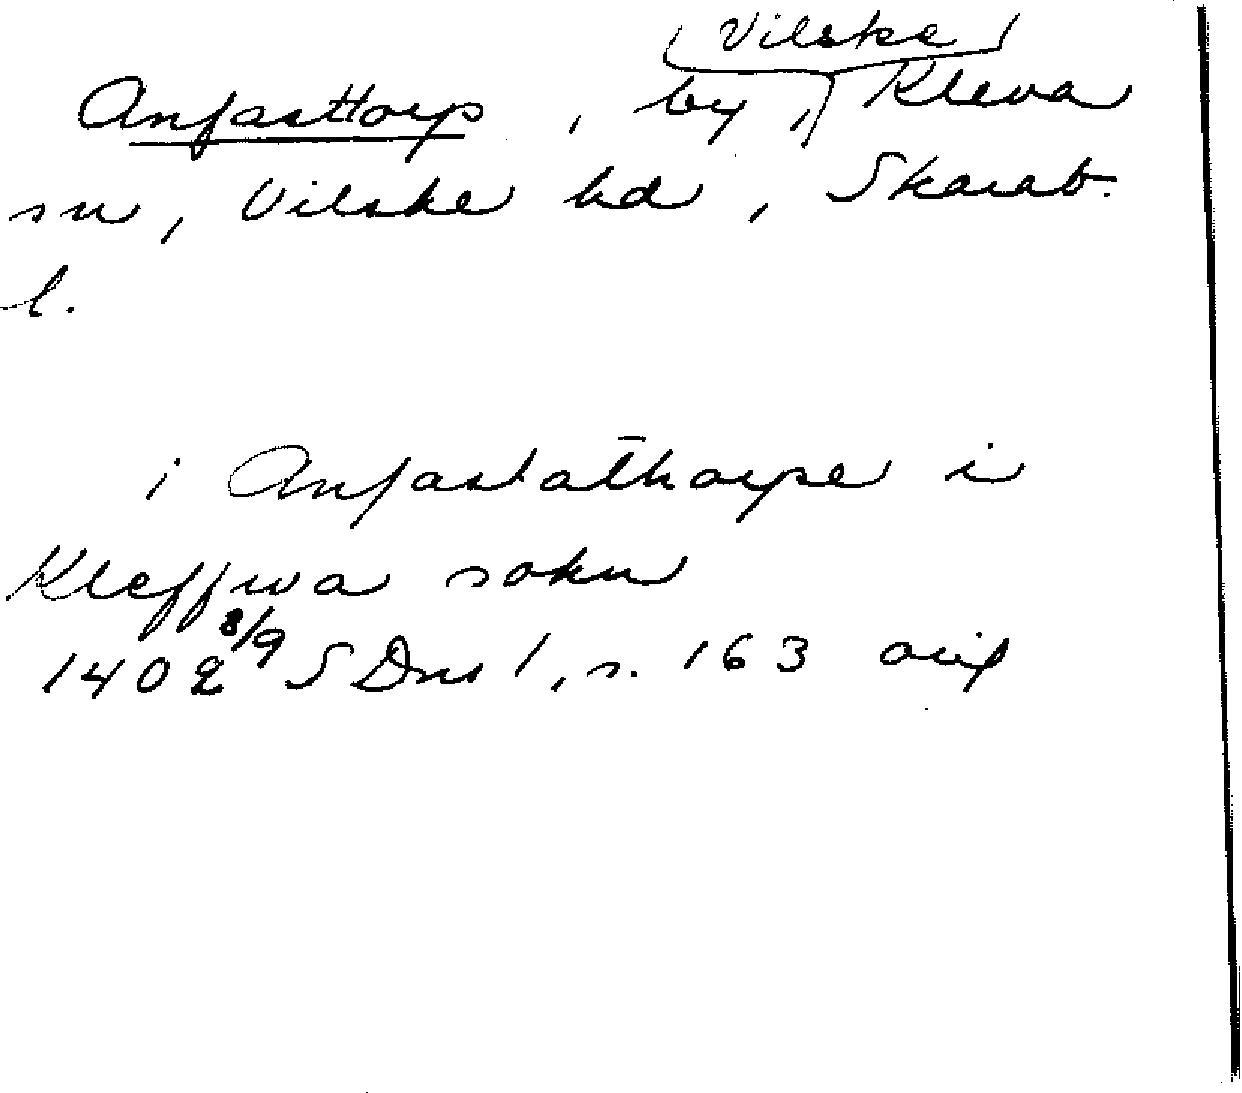 (Vilske)
Anfasttorp, by, Kleva
sn, Vilske hd, Skarab.
l.
i Anfastathorpe i
Kleffwa sokn
1402 8/9 SDns 1, s. 163 orig